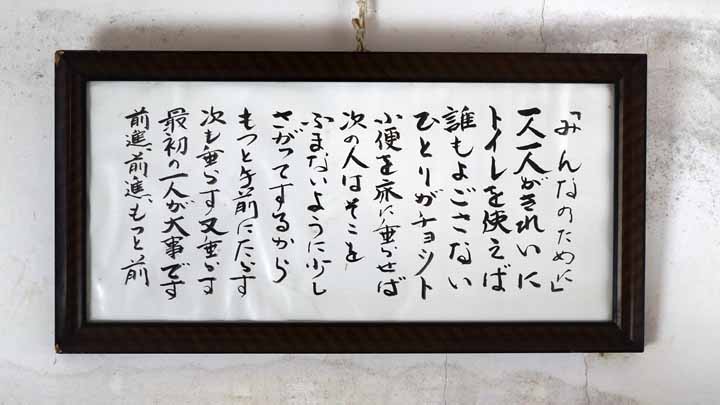 「みんなのために」
一人一人がきれいに
トイレを使えば
誰もよごさない
ひとりがチョット
小便を床に垂らせば
次の人はそこを
ふまないように少し
さがってするから
もっと手前にたらす
次も垂らす又垂らす
最初の一人が大事です
前進、前進、もっと前